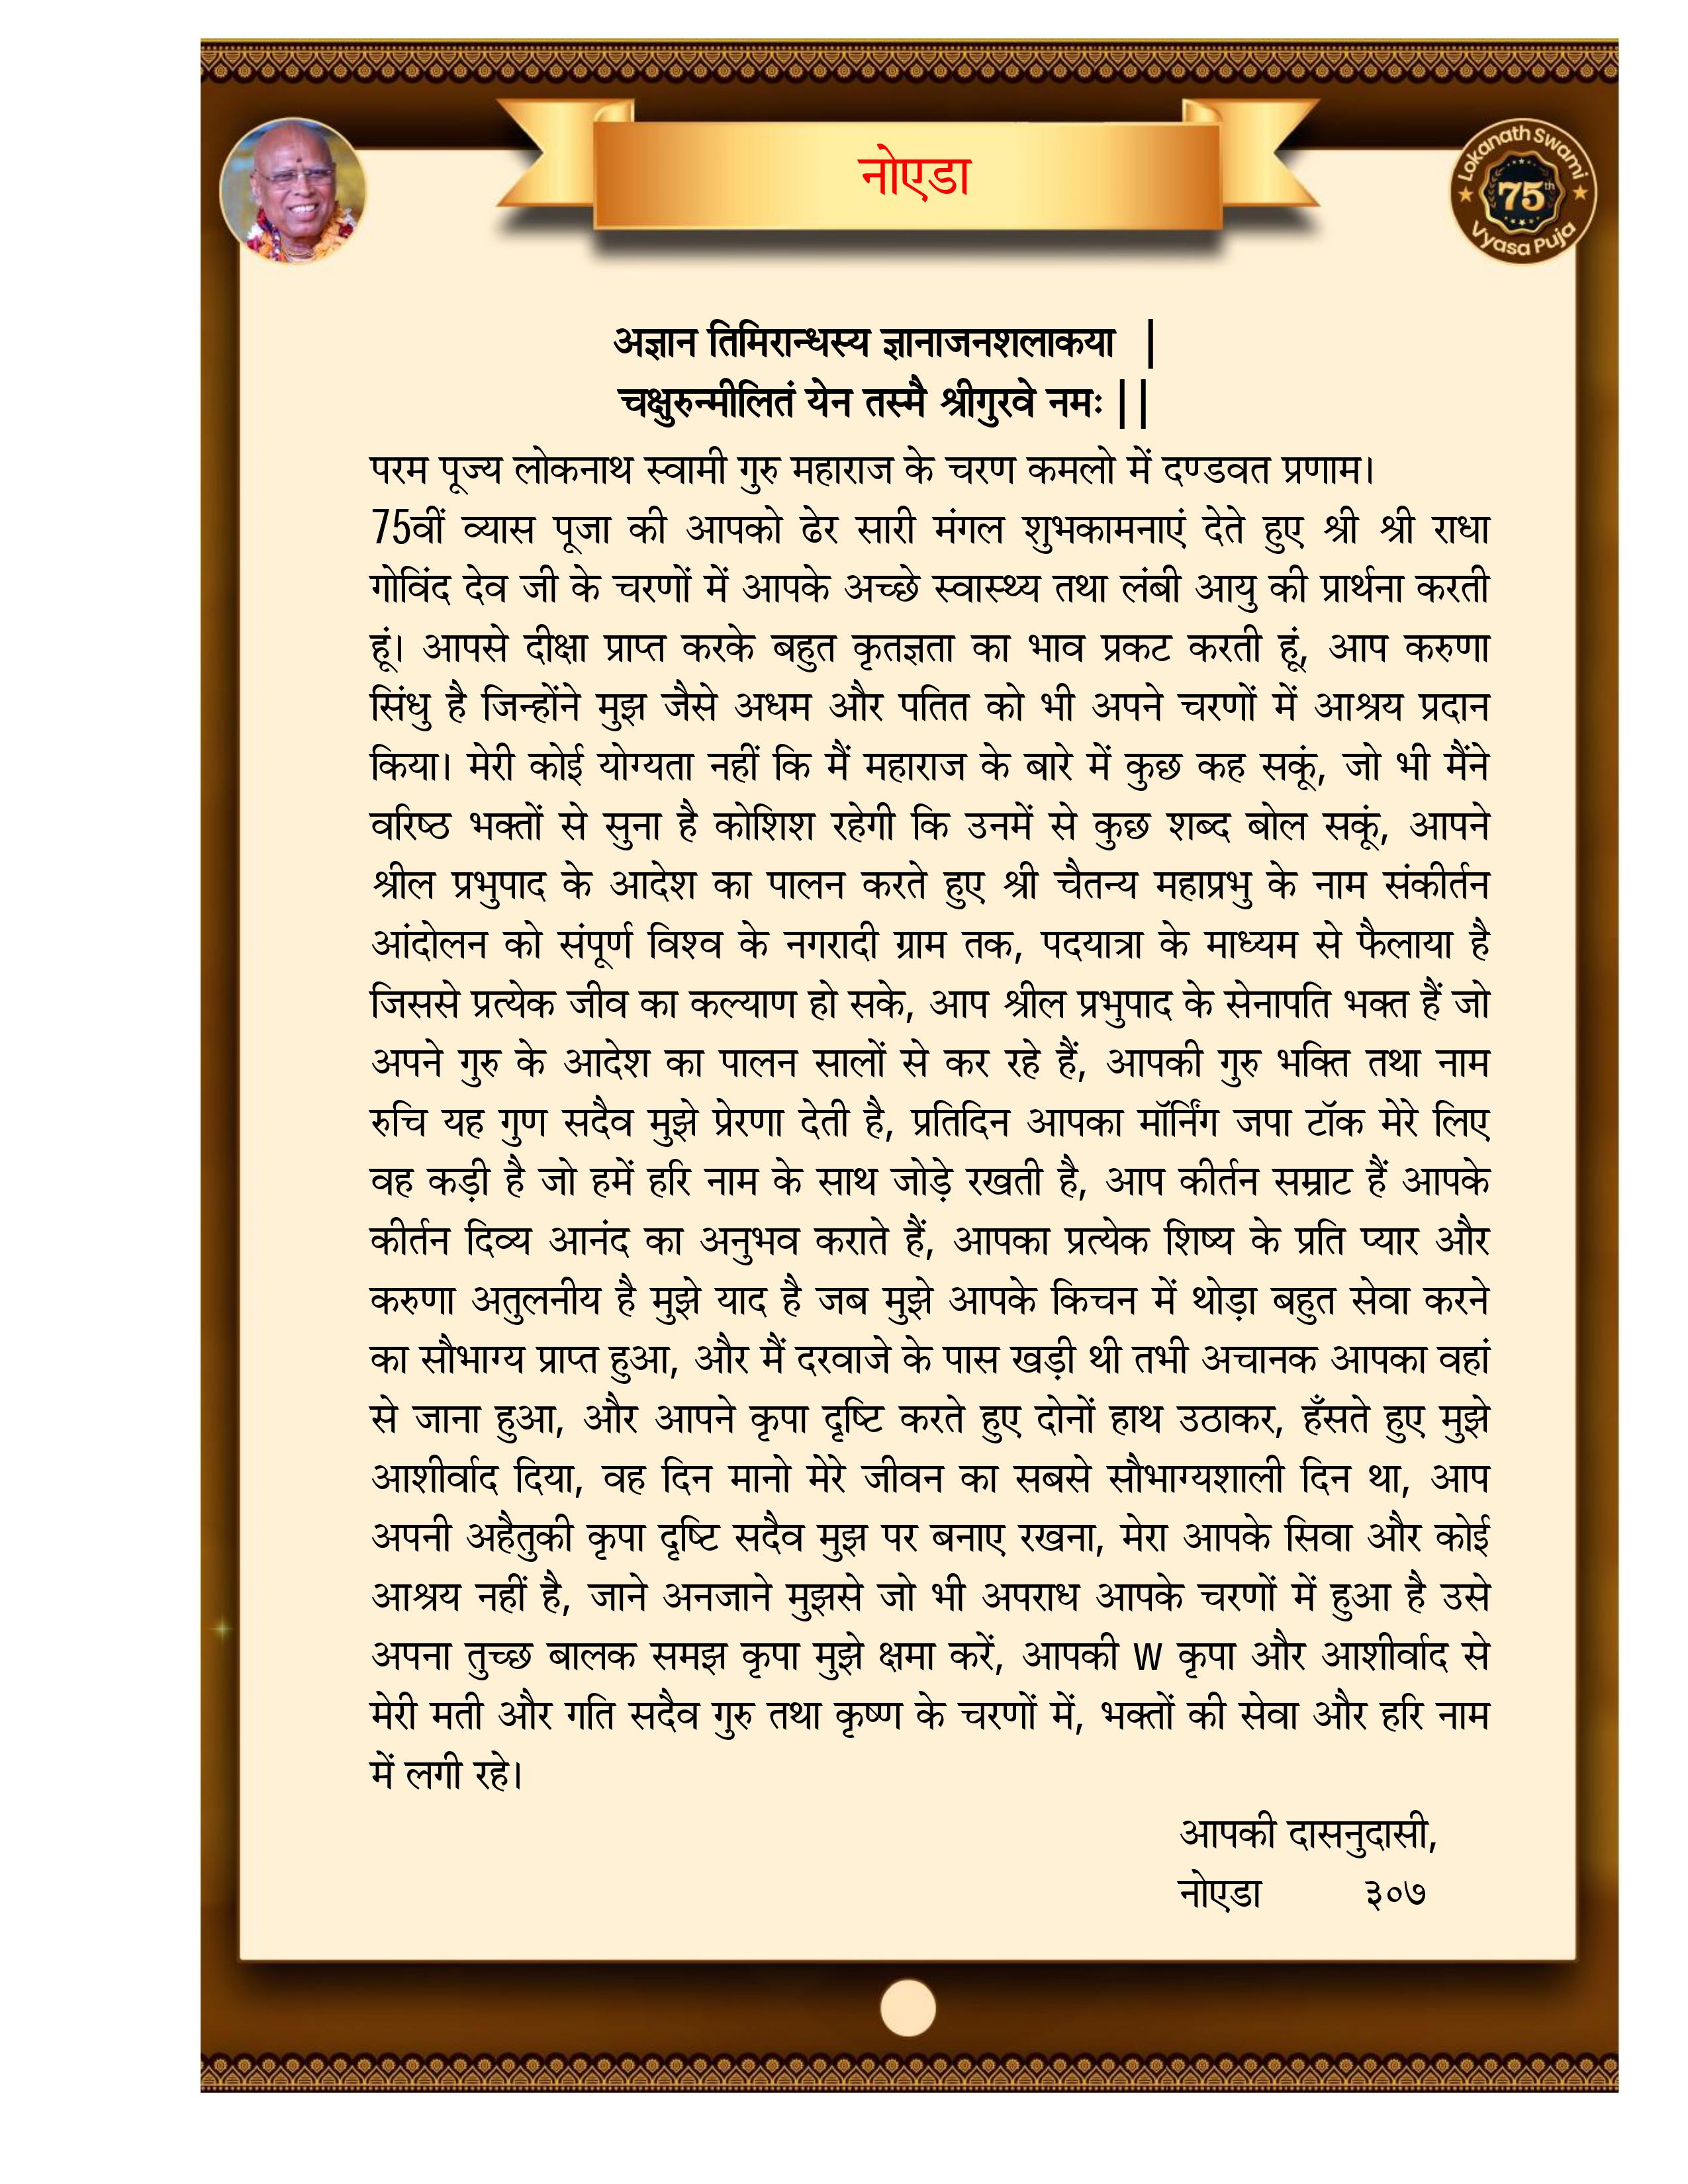 नोएडा
Lokanath Swami
75th
Vyasa Puja
अज्ञान तिमिरान्धस्य ज्ञानाजनशलाकया |
चक्षुरुन्मीलितं येन तस्मै श्रीगुरवे नमः ||
परम पूज्य लोकनाथ स्वामी गुरु महाराज के चरण कमलो में दण्डवत प्रणाम।
75वीं व्यास पूजा की आपको ढेर सारी मंगल शुभकामनाएं देते हुए श्री श्री राधा
गोविंद देव जी के चरणों में आपके अच्छे स्वास्थ्य तथा लंबी आयु की प्रार्थना करती
हूं। आपसे दीक्षा प्राप्त करके बहुत कृतज्ञता का भाव प्रकट करती हूं, आप करुणा
सिंधु है जिन्होंने मुझ जैसे अधम और पतित को भी अपने चरणों में आश्रय प्रदान
किया। मेरी कोई योग्यता नहीं कि मैं महाराज के बारे में कुछ कह सकूं, जो भी मैंने
वरिष्ठ भक्तों से सुना है कोशिश रहेगी कि उनमें से कुछ शब्द बोल सकूं, आपने
श्रील प्रभुपाद के आदेश का पालन करते हुए श्री चैतन्य महाप्रभु के नाम संकीर्तन
आंदोलन को संपूर्ण विश्व के नगरादी ग्राम तक, पदयात्रा के माध्यम से फैलाया है
जिससे प्रत्येक जीव का कल्याण हो सके, आप श्रील प्रभुपाद के सेनापति भक्त हैं जो
अपने गुरु के आदेश का पालन सालों से कर रहे हैं, आपकी गुरु भक्ति तथा नाम
रुचि यह गुण सदैव मुझे प्रेरणा देती है, प्रतिदिन आपका मॉर्निंग जपा टॉक मेरे लिए
वह कड़ी है जो हमें हरि नाम के साथ जोड़े रखती है, आप कीर्तन सम्राट हैं आपके
कीर्तन दिव्य आनंद का अनुभव कराते हैं, आपका प्रत्येक शिष्य के प्रति प्यार और
करुणा अतुलनीय है मुझे याद है जब मुझे आपके किचन में थोड़ा बहुत सेवा करने
का सौभाग्य प्राप्त हुआ, और मैं दरवाजे के पास खड़ी थी तभी अचानक आपका वहां
से जाना हुआ, और आपने कृपा दृष्टि करते हुए दोनों हाथ उठाकर, हँसते हुए मुझे
आशीर्वाद दिया, वह दिन मानो मेरे जीवन का सबसे सौभाग्यशाली दिन था, आप
अपनी अहैतुकी कृपा दृष्टि सदैव मुझ पर बनाए रखना, मेरा आपके सिवा और कोई
आश्रय नहीं है, जाने अनजाने मुझसे जो भी अपराध आपके चरणों में हुआ है उसे
अपना तुच्छ बालक समझ कृपा मुझे क्षमा करें, आपकी w कृपा और आशीर्वाद से
मेरी मती और गति सदैव गुरु तथा कृष्ण के चरणों में, भक्तों की सेवा और हरि नाम
में लगी रहे।
आपकी दासनुदासी,
नोएडा ३०७